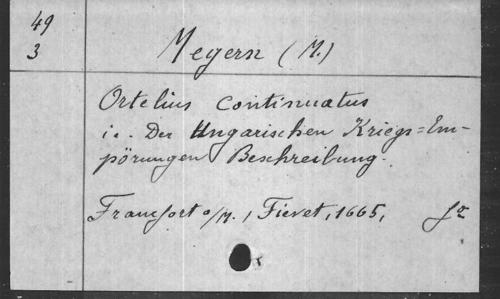 49
3
Megern (M.)
Ortelius continuatus
i.e. Der Ungarischen Kriegs=Em-
pörungen Beschreibung.
Francfort o/M., Fievet, 1665, fo